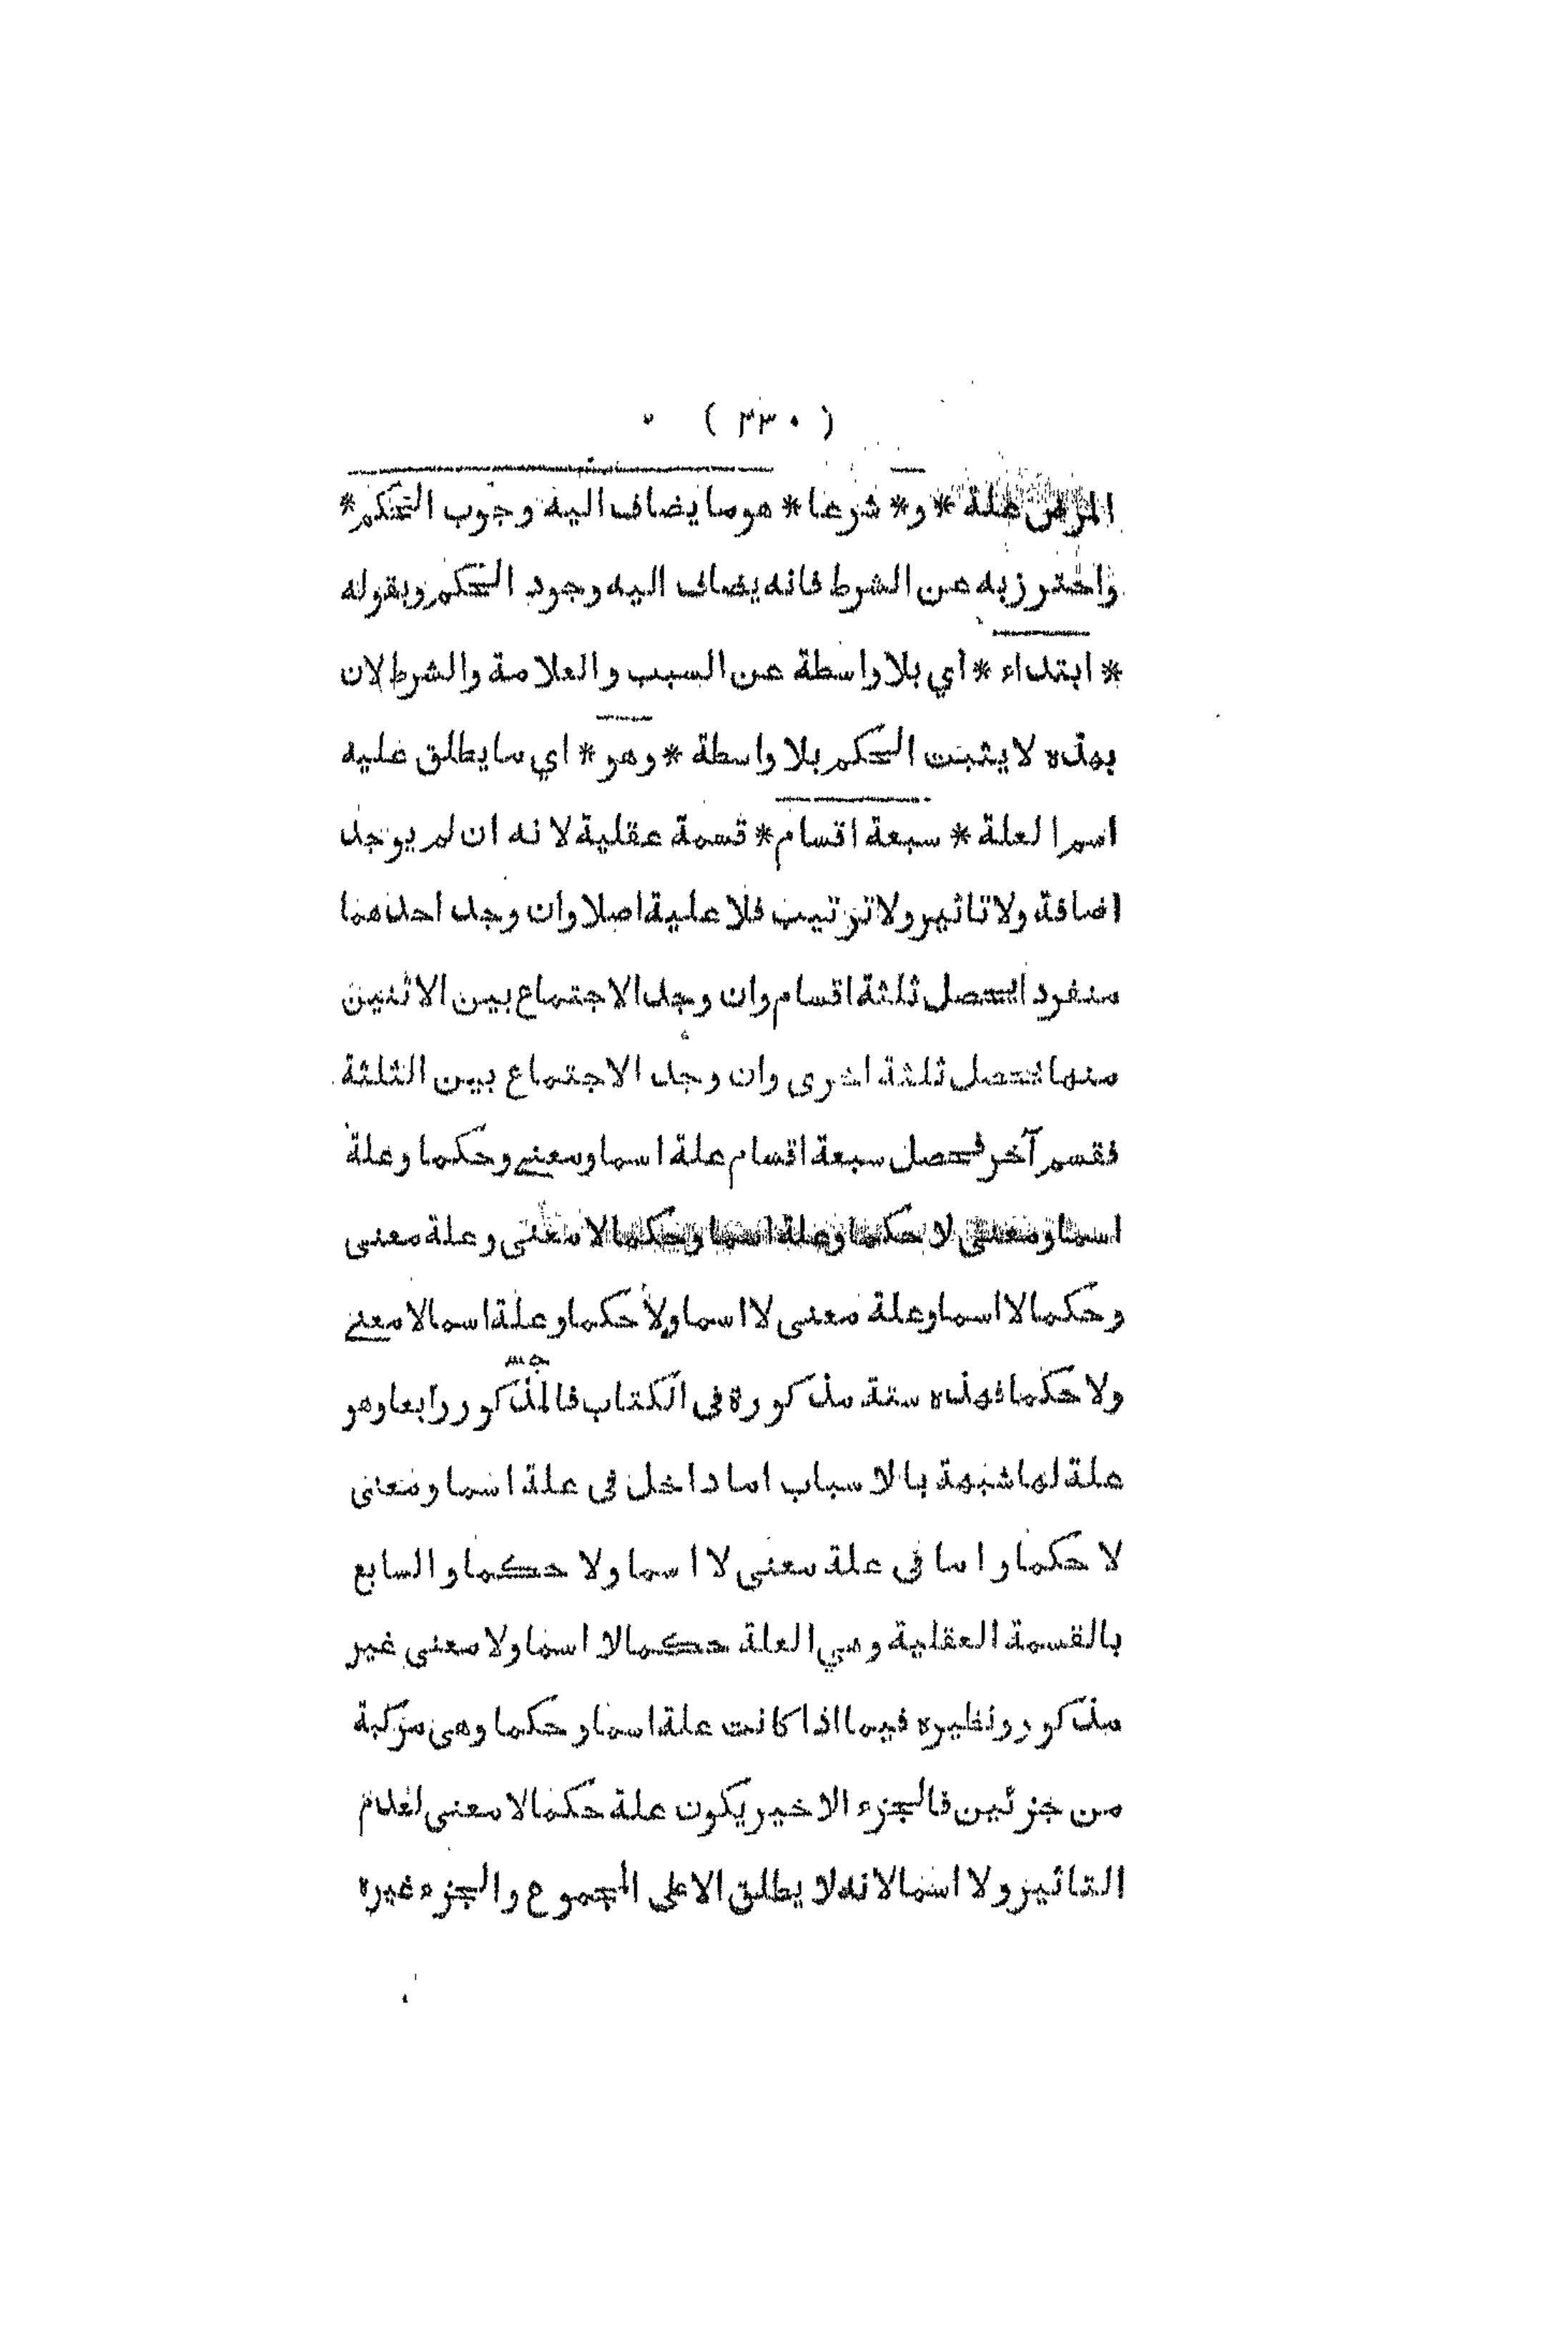 ( ٣٣٠ )
المرض علة * و * شرعا * هو ما يضاف اليه وجوب الحكم *
واحترز به عن الشرط فانه يضاف اليه وجود الحكم وبقوله
* ابتداء * أي بلا واسطة عن السبب والعلامة والشرط لان
بهذه لا يثبت الحكم بلا واسطة * وهو * اي ما يطلق عليه
اسم العلة * سبعة اقسام * قسمة عقلية لانه ان لم يوجد
اضافة ولا تاثير ولا ترتيب فلا علية اصلا وان وجد احدهما
منفردا يحصل ثلثة اقسام وان وجد الاجتماع بين الاثنين
منها فتحصل ثلثة اخرى وان وجد الاجتماع بين الثلثة
فقسم آخر فحصل سبعة اقسام علة اسما ومعنى وحكما وعلة
اسما ومعنى لا حكما وعلة اسما وحكما لا معنى وعلة معنى
وحكما لا اسما وعلة معنى لا اسما ولا حكما وعلة اسما لا معنى
ولا حكما فهذه ستة مذكورة في الكتاب فالمذكور رابعا وهو
علة لها شبهة بالاسباب اما داخل في علة اسما ومعنى
لا حكما واما في علة معنى لا اسما ولا حكما والسابع
بالقسمة العقلية وهي العلة حكما لا اسما ولا معنى غير
مذكور ونظيره فيما اذا كانت علة اسما وحكما وهى مركبة
من جزئين فالجزء الاخير يكون علة حكما لا معنى لعدم
التاثير ولا اسما لانه لا يطلق الا على المجموع والجزء غيره